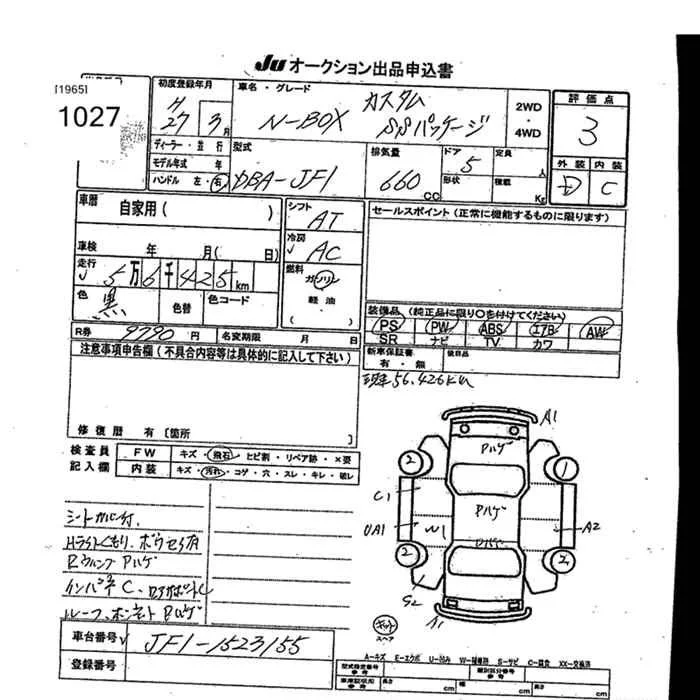 JU オークション出品申込書
[1965]
1027
初度登録年月
H27 3月
車名・グレード
N-BOX カスタム SSパッケージ
2WD・4WD
評価点
3
ディーラー・並行
モデル年式 年
ハンドル 左・右
型式
DBA-JF1
排気量
660 CC
ドア
5
形状
定員
人
積載
Kg
外装 内装
D C
車歴
自家用( )
シフト
AT
セールスポイント(正常に機能するものに限ります)
車検 年 月( 日)
冷房
AC
走行
5万6千425km
燃料
ガソリン
軽油
色
黒
色替
色コード
装備品(純正品に限り○を付けてください)
PS PW ABS エアB AW
SR ナビ TV カワ
R券 9790円
名変期限 月 日
新車保証書
有・無
後日品
注意事項申告欄(不具合内容等は具体的に記入して下さい)
現車56.426km
修復歴 有[箇所 ]
検査員
記入欄
FW キズ・飛石・ヒビ割・リペア跡・×要
内装 キズ・汚れ・コゲ・穴・スレ・キレ・破レ
シートカバー付.
Hライトくもり.
RウィングPハゲ
インパネC.
ルーフ.ボンネットPハゲ
A1
Pハゲ
2
1
C1
Pハゲ
UA1
W1
A2
Pハゲ
2
2
G2
A1
キット
スペア
車台番号 JF1-1523155
登録番号
A-キズ E-エクボ U-凹み W-補修跡 S-サビ C-腐食 XX-交換済
型式指定番号
参考
類別区分番号
参考
車庫証明用
参考
長さ cm
幅 cm
高さ cm